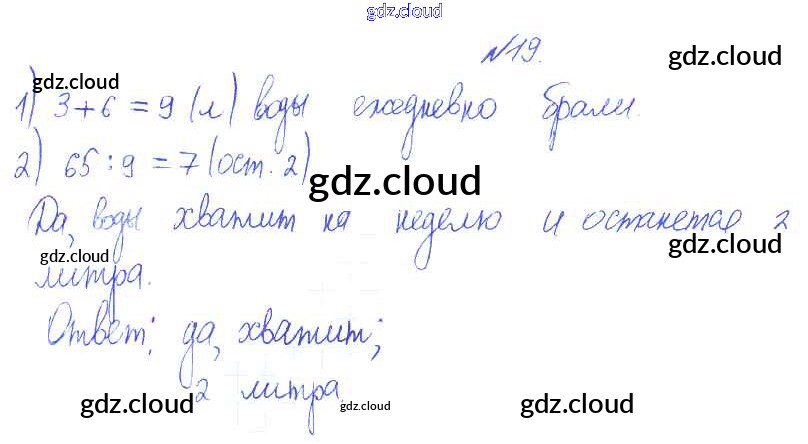 gdz.cloud
№19.
gdz.cloud
gdz.cloud
1) 3+6 = 9 (л) воды ежедневно брали.
2) 65 : 9 = 7 (ост. 2)
gdz.cloud
Да, воды хватит на неделю и останется 2
gdz.cloud
gdz.cloud
литра.
Ответ: да, хватит;
2 литра
gdz.cloud
gdz.cloud
gdz.cloud